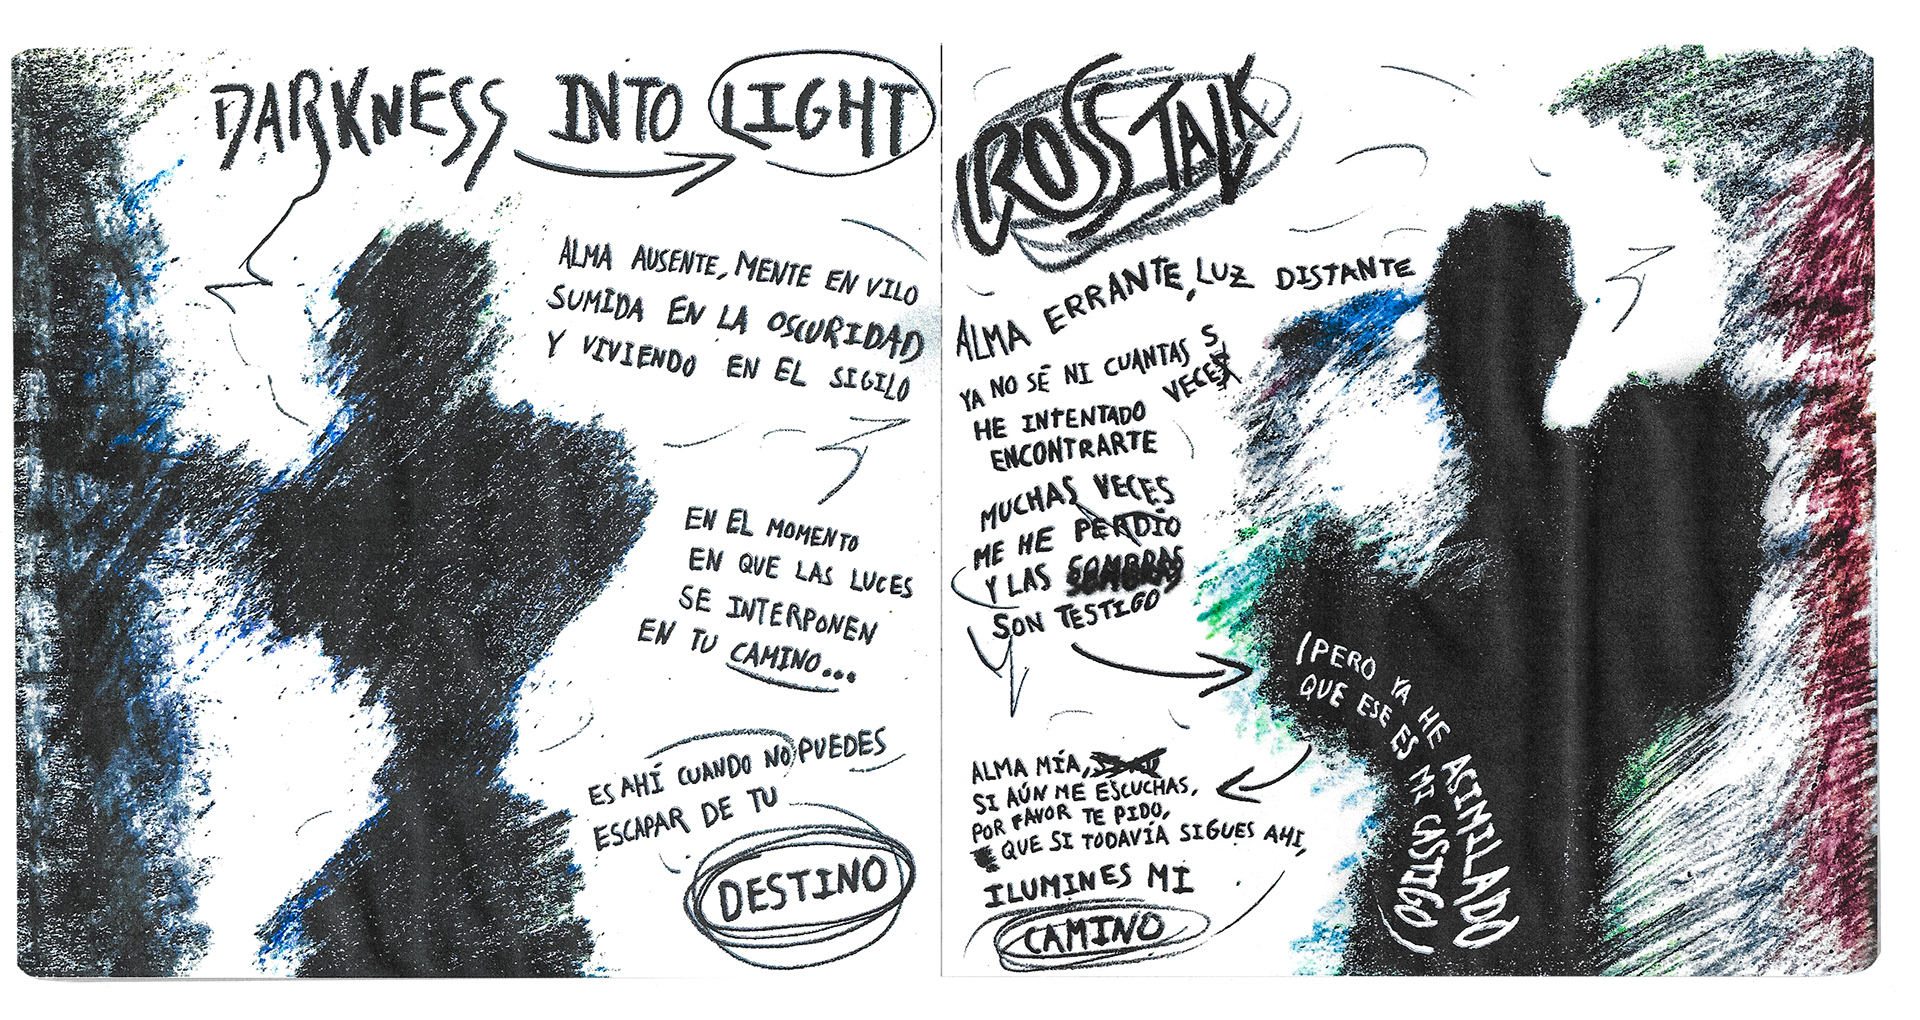 DARKNESS INTO LIGHT
ALMA AUSENTE, MENTE EN VILO
SUMIDA EN LA OSCURIDAD
Y VIVIENDO EN EL SIGILO
EN EL MOMENTO
EN QUE LAS LUCES
SE INTERPONEN
EN TU CAMINO...
ES AHÍ CUANDO NO PUEDES
ESCAPAR DE TU
DESTINO
CROSS TALK
ALMA ERRANTE, LUZ DISTANTE
YA NO SÉ NI CUANTAS VECES
HE INTENTADO
ENCONTRARTE
MUCHAS VECES
ME HE PERDIO
Y LAS SOMBRAS
SON TESTIGO
(PERO YA HE ASINILADO
QUE ESE ES MI CASTIGO)
ALMA MÍA,
SI AÚN ME ESCUCHAS,
POR FAVOR TE PIDO,
QUE SI TODAVÍA SIGUES AHI,
ILUMINES MI
CAMINO